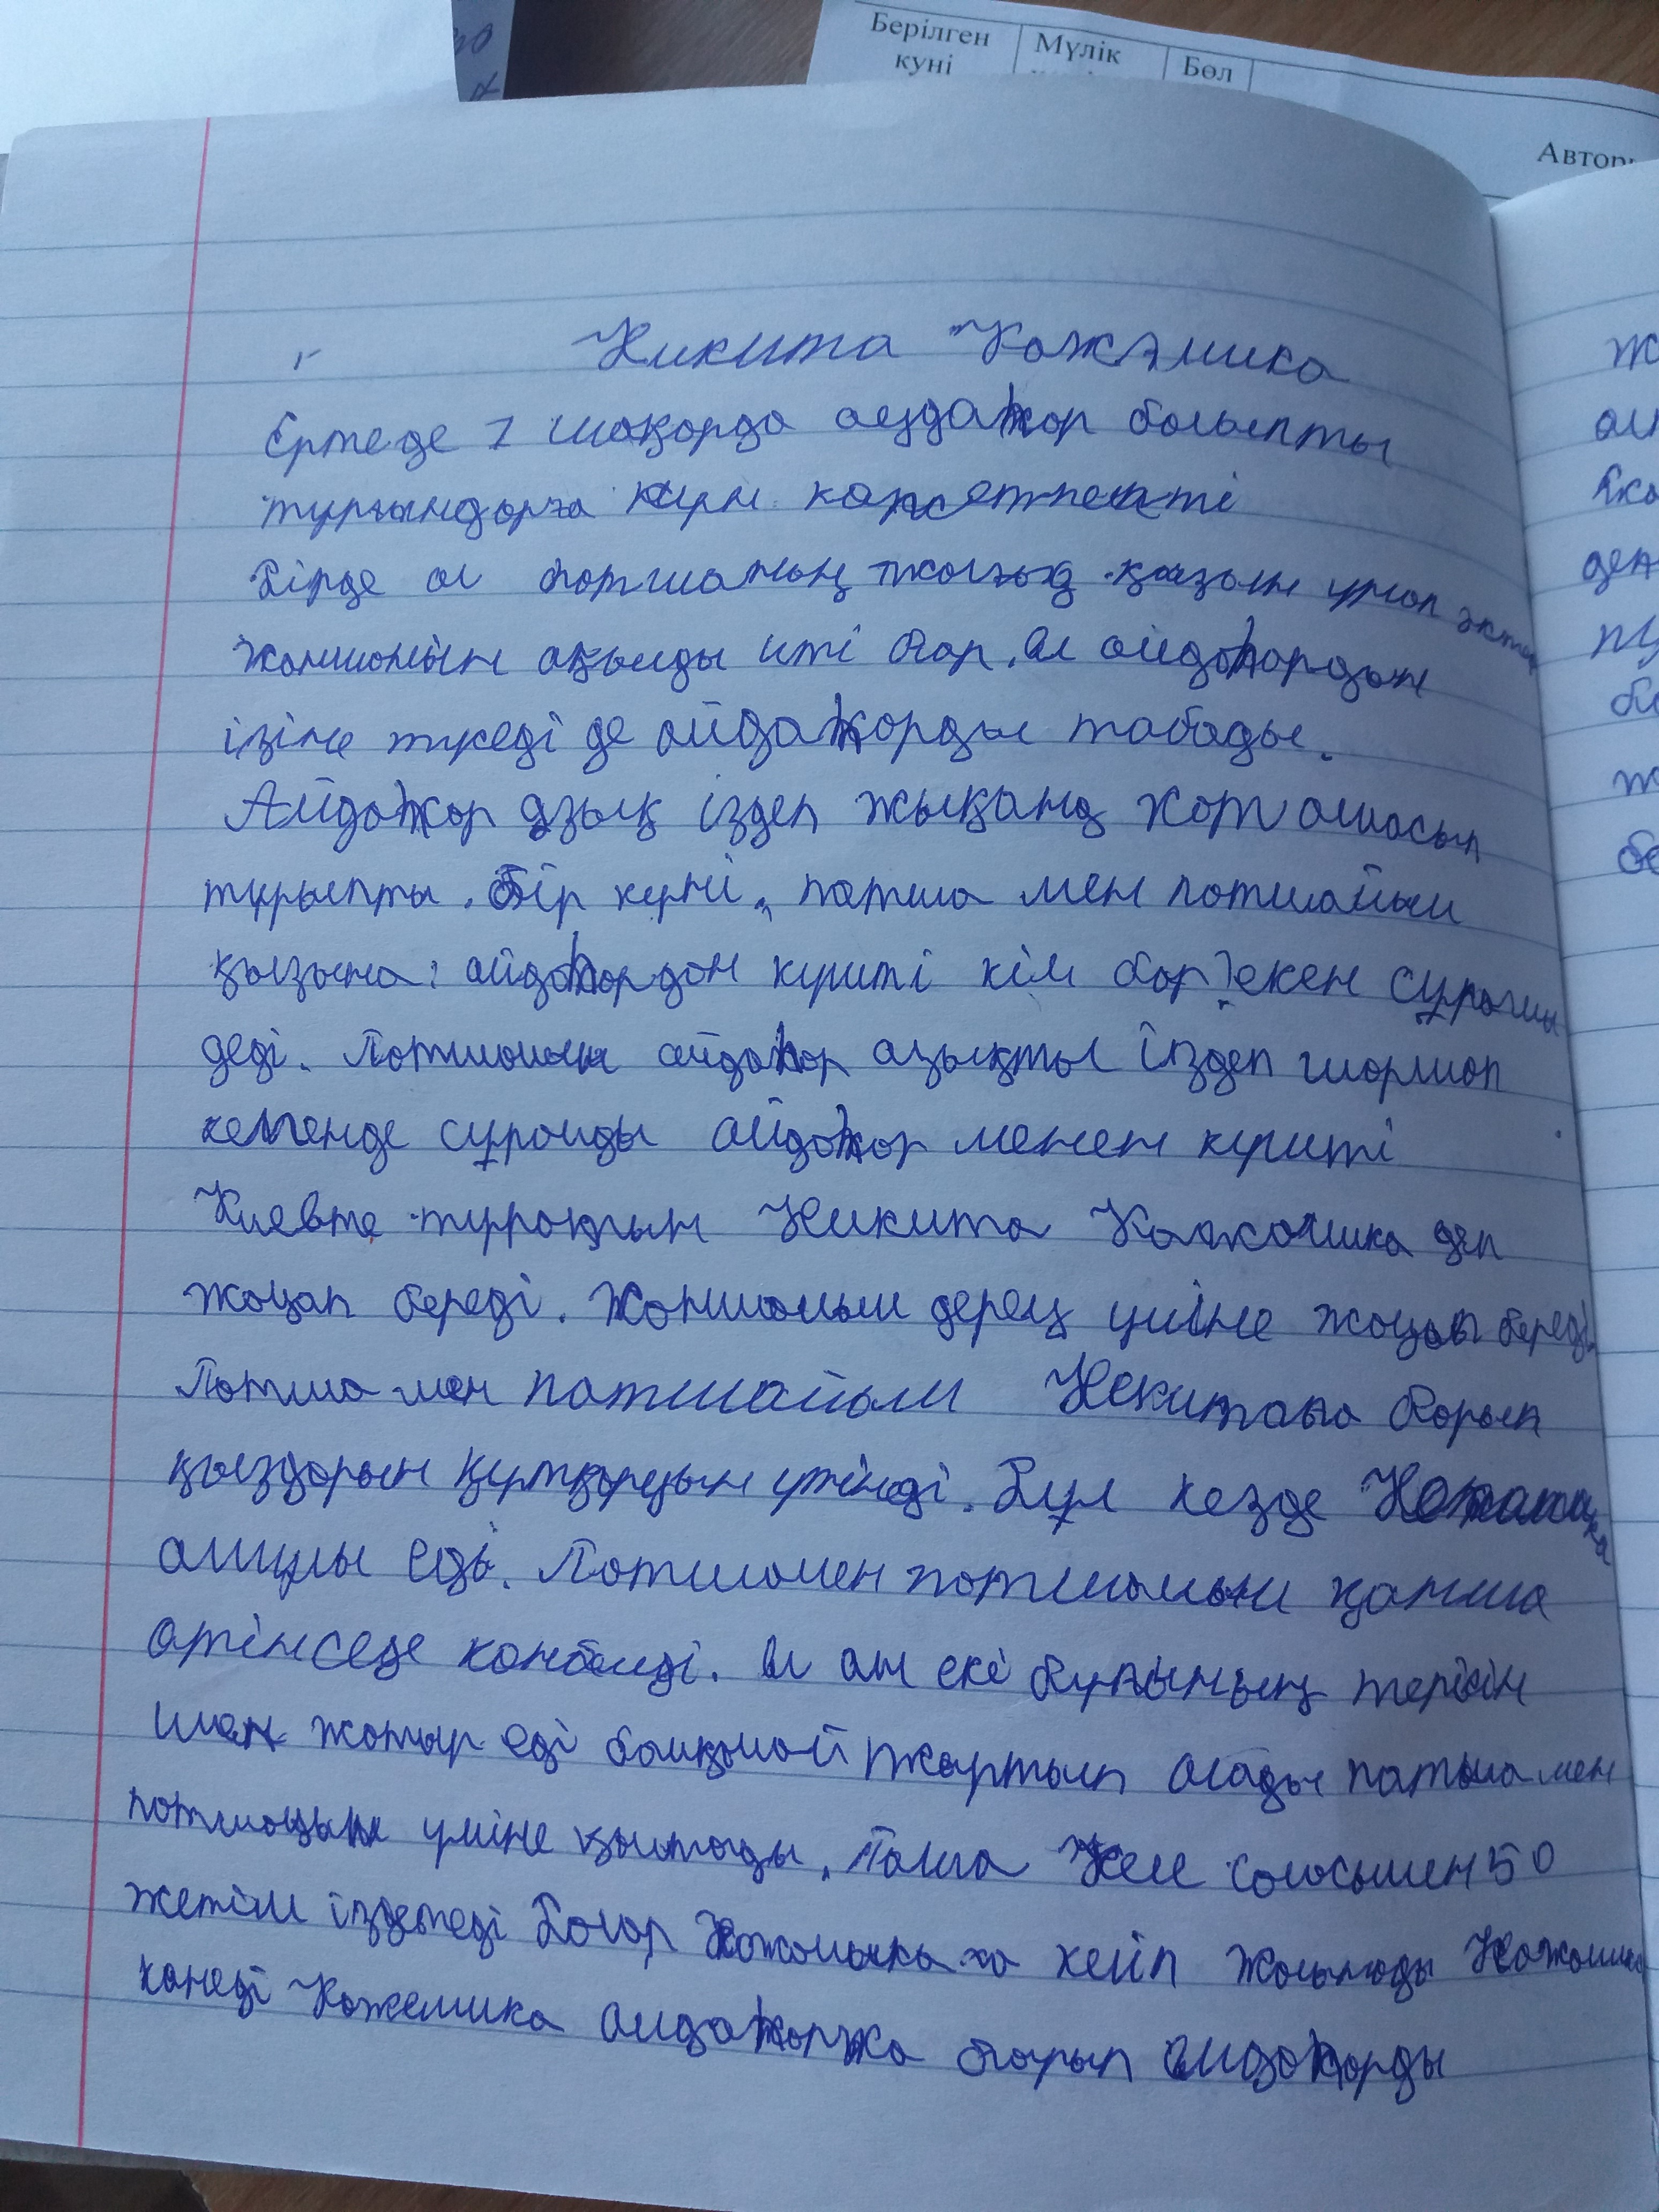 Берілген куні
Мүлік
Бөл
Автор
Никита Кожэмика
Ертеде 1 шақарда аждаһор болыпты
тұрғындарға күн көрсетпепті
Бірде ол потшаның жалғыз қызын ұрлап әкетеді
Ханшайын ақылды иті бар. Ол айдаһардын
ізіне түседі де айдаһарды табады.
Айдаһар азық іздеп жыққанд хат алмасып
тұрыпты. Бір күні, патша мен потшайым
қызына: айдаһордан күшті кім бар екен сұрағын
деді. Потшайым айдаһор азықты іздеп шаршап
келгенде сұрайды айдаһор менен күшті
Киевте тұратын Никита Кожомика деп
жауап береді. Ханшайым дереу үйіне жауап береді.
Потша мен патшайым Некитаға барып
қыздарын құтқаруын өтінді. Бұл кезде Кожамика
ашулы еді. Потшамен потшайым қанша
өтінседе көнбеді. Ол он екі бұғының терісін
илеп жатыр еді байқамай жыртып алады патша мен
потшайым үйіне қайтады. Патша Кеңесшісімен 50
жетім іздетеді Болар Кожомыка ға келіп жалынады Кожомика
көнеді Кожемика аидаһорға барып аидаһорды